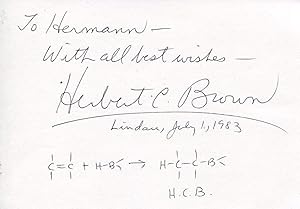 To Hermann —
With all best wishes —
Herbert C. Brown
Lindau, July 1, 1983
C=C + H-B → H-C-C-B
H.C.B.